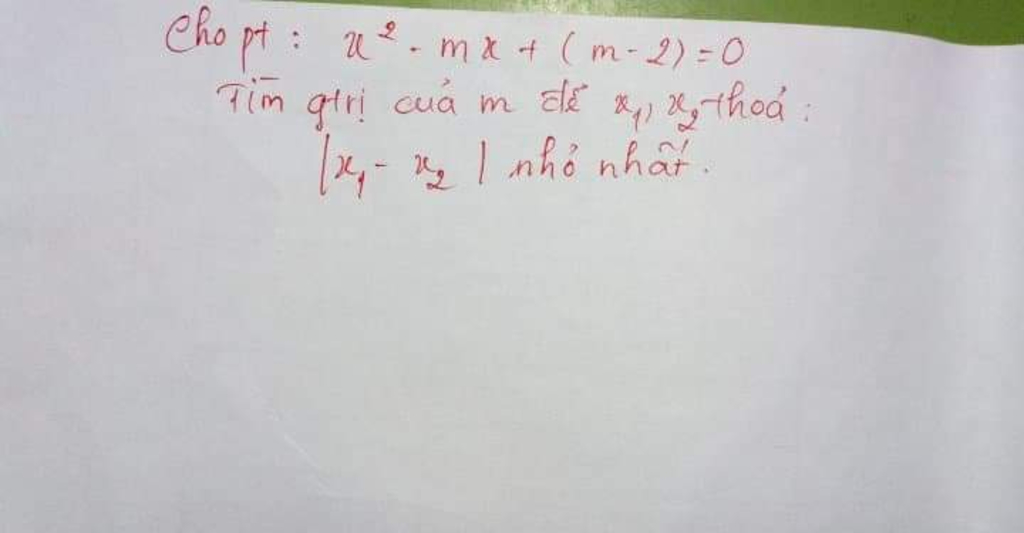 Cho pt : x² - mx + (m-2) = 0
Tìm gtrị của m để x₁, x₂ thoả :
|x₁ - x₂| nhỏ nhất.